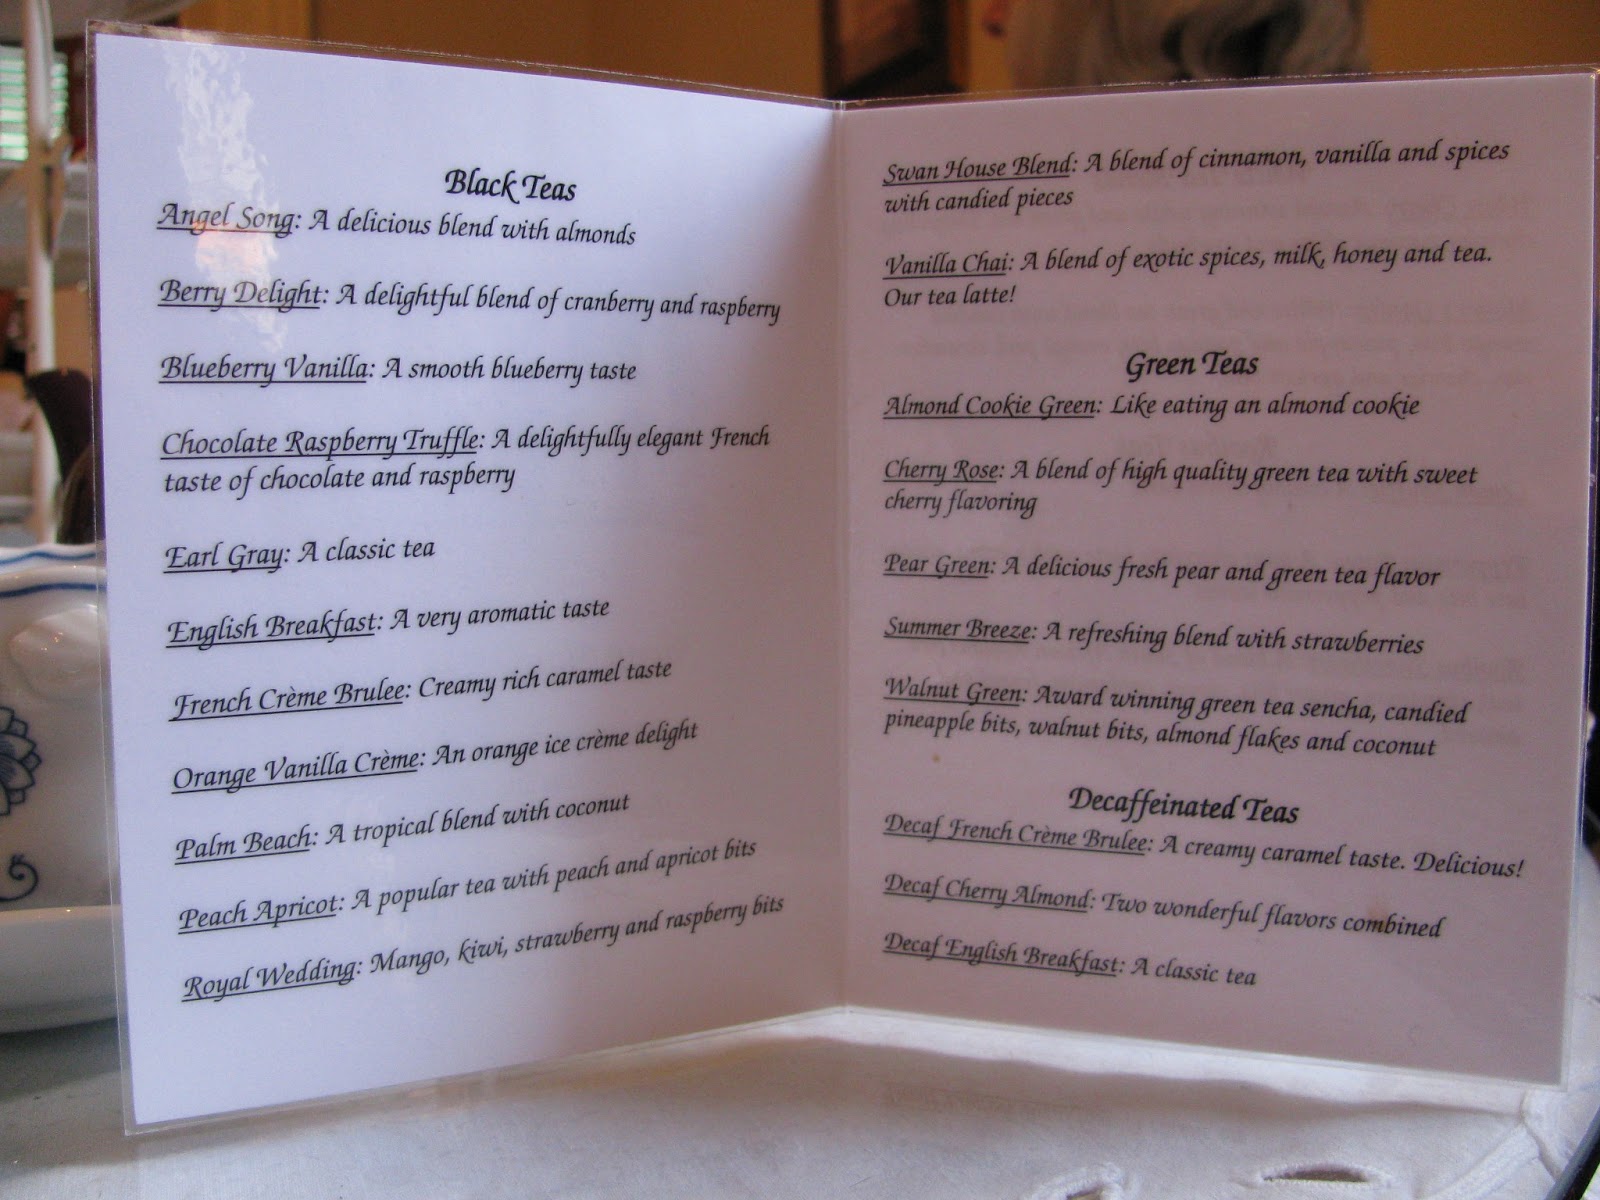 Black Teas
Angel Song: A delicious blend with almonds
Berry Delight: A delightful blend of cranberry and raspberry
Blueberry Vanilla: A smooth blueberry taste
Chocolate Raspberry Truffle: A delightfully elegant French
taste of chocolate and raspberry
Earl Gray: A classic tea
English Breakfast: A very aromatic taste
French Crème Brulee: Creamy rich caramel taste
Orange Vanilla Crème: An orange ice crème delight
Palm Beach: A tropical blend with coconut
Peach Apricot: A popular tea with peach and apricot bits
Royal Wedding: Mango, kiwi, strawberry and raspberry bits
Swan House Blend: A blend of cinnamon, vanilla and spices
with candied pieces
Vanilla Chai: A blend of exotic spices, milk, honey and tea.
Our tea latte!
Green Teas
Almond Cookie Green: Like eating an almond cookie
Cherry Rose: A blend of high quality green tea with sweet
cherry flavoring
Pear Green: A delicious fresh pear and green tea flavor
Summer Breeze: A refreshing blend with strawberries
Walnut Green: Award winning green tea sencha, candied
pineapple bits, walnut bits, almond flakes and coconut
Decaffeinated Teas
Decaf French Crème Brulee: A creamy caramel taste. Delicious!
Decaf Cherry Almond: Two wonderful flavors combined
Decaf English Breakfast: A classic tea